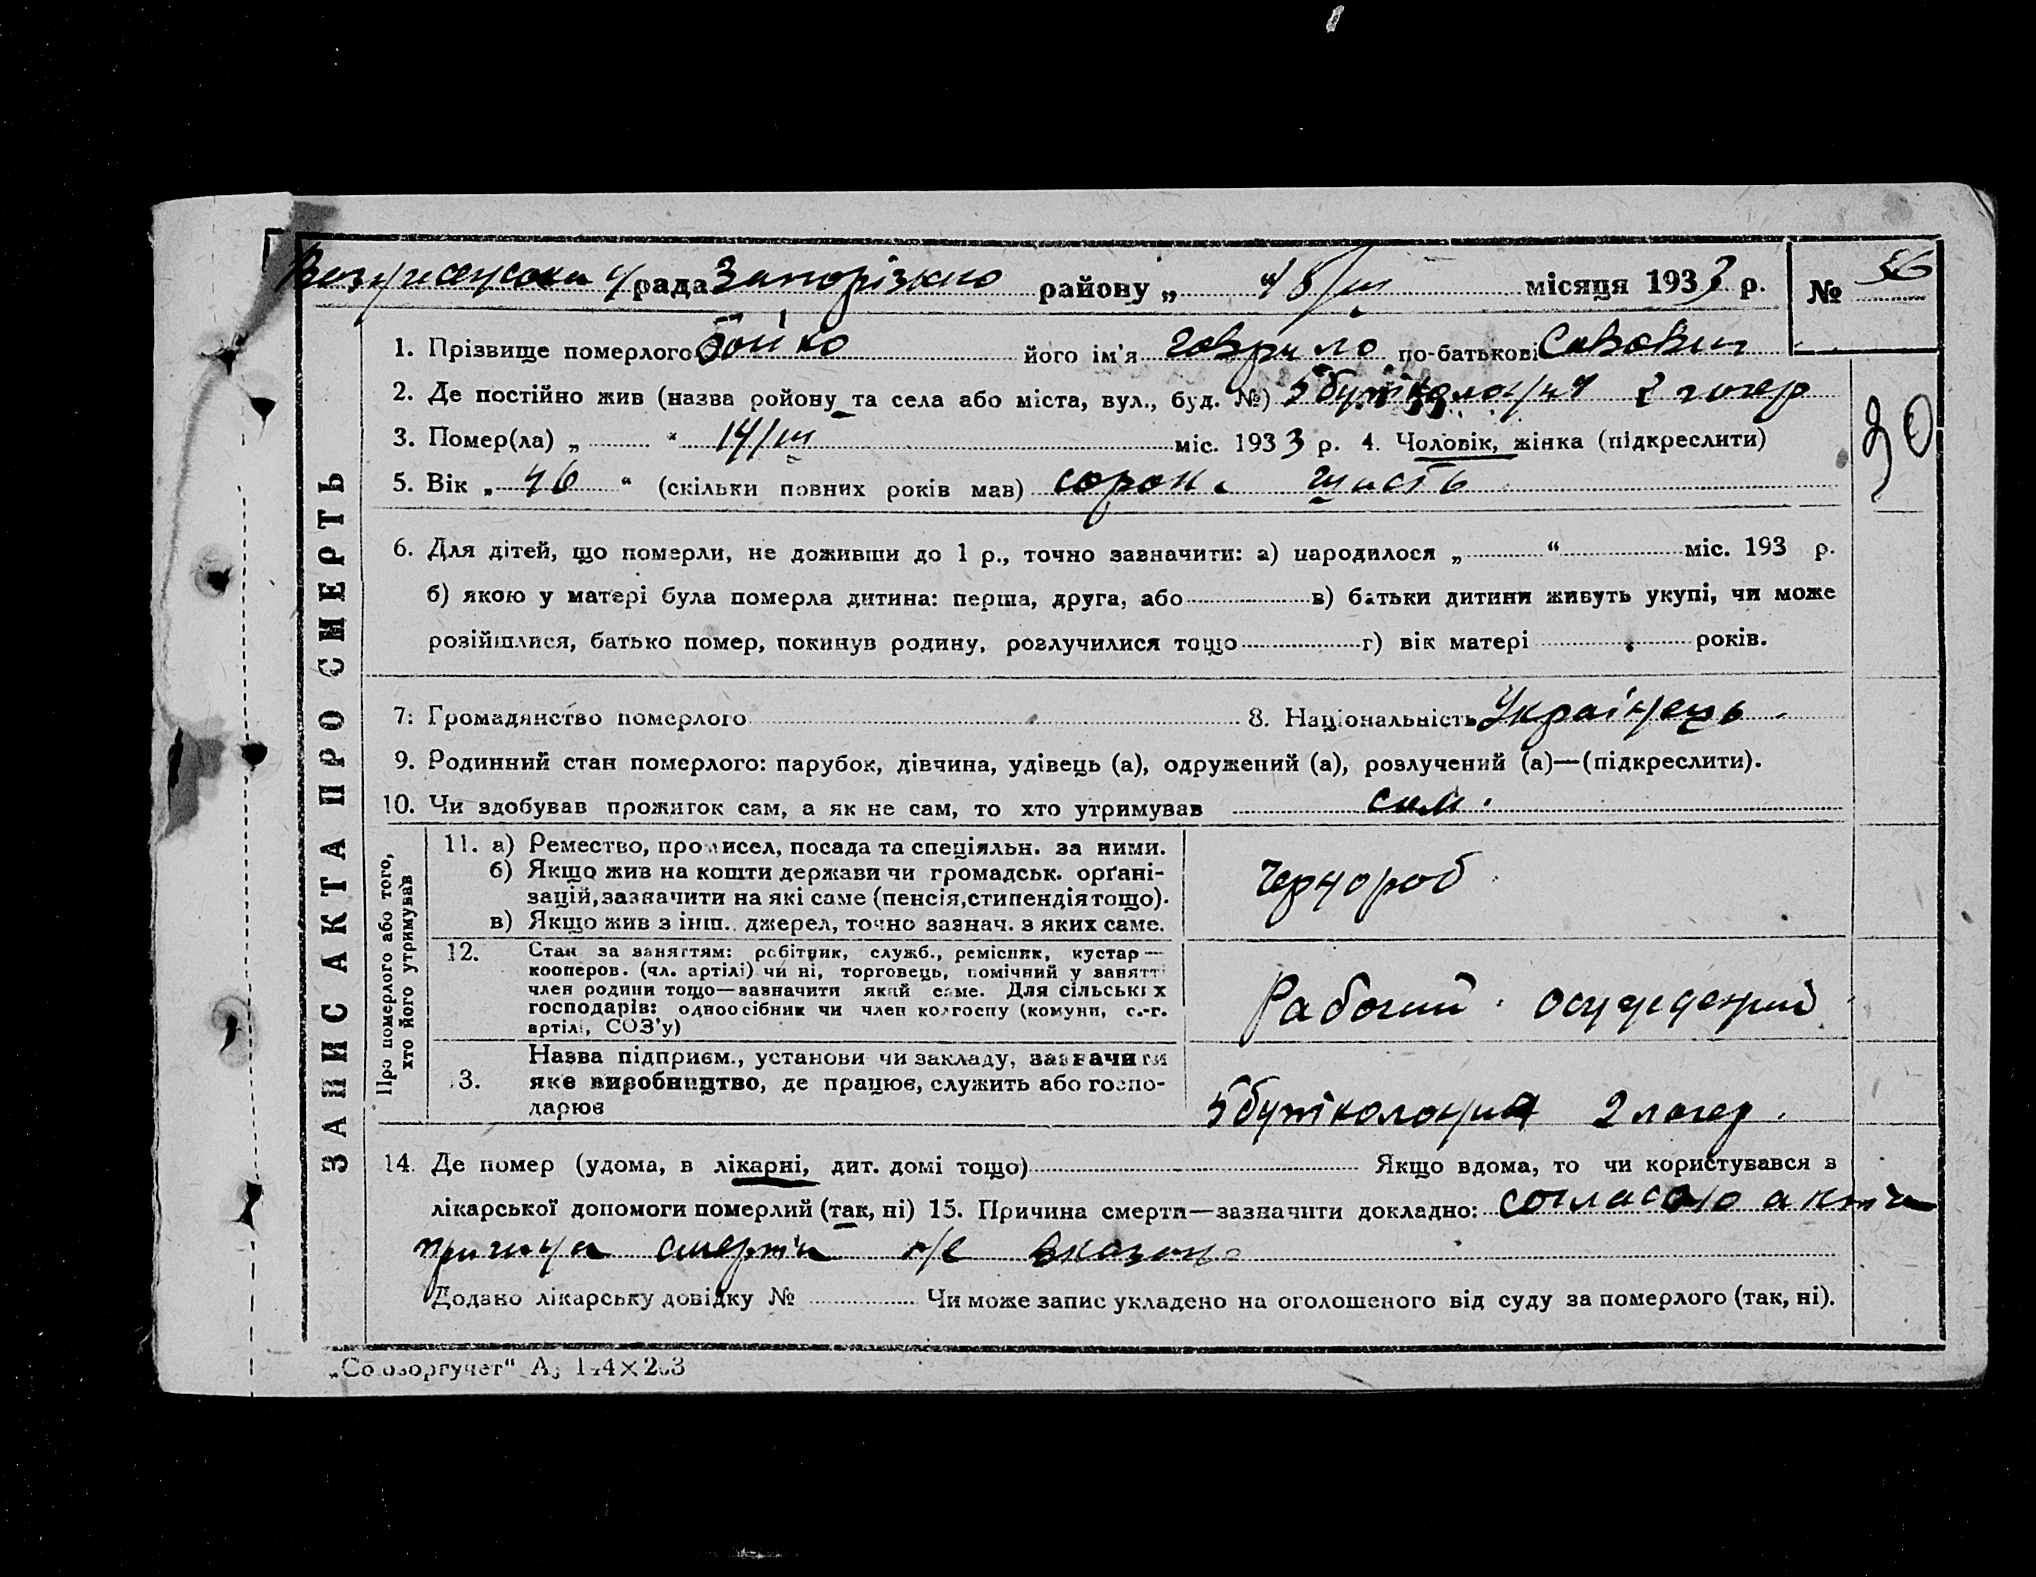 рада Запорізького району „ 18/III місяця 1933 р. № 56
ЗАПИС АКТА ПРО СМЕРТЬ
1. Прізвище померлого Бойко його ім'я Гаврило по-батькові Савович
2. Де постійно жив (назва району та села або міста, вул., буд. №) 5 бутколонія 2 лагер
3. Помер(ла) „ “ 14/III міс. 1933 р. 4. Чоловік, жінка (підкреслити)
30
5. Вік „ 46 “ (скільки повних років мав) сорок шисть
6. Для дітей, що померли, не доживши до 1 р., точно зазначити: а) народилося „ “ міс. 193 р.
б) якою у матері була померла дитина: перша, друга, або в) батьки дитини живуть укупі, чи може
розійшлися, батько помер, покинув родину, розлучилися тощо г) вік матері років.
7. Громадянство померлого 8. Національність Українець
9. Родинний стан померлого: парубок, дівчина, удівець (а), одружений (а), розлучений (а)—(підкреслити).
10. Чи здобував прожиток сам, а як не сам, то хто утримував сам.
Про померлого або того, хто його утримував
11. а) Ремество, промисел, посада та спеціяльн. за ними.
б) Якщо жив на кошти держави чи громадськ. орґані-
зацій, зазначити на які саме (пенсія, стипендія тощо).
в) Якщо жив з інш. джерел, точно зазнач. з яких саме.
Чернороб
12. Стан за заняттям: робітник, служб., ремісник, кустар—
кооперов. (чл. артілі) чи ні, торговець, помічний у занятті
член родини тощо—зазначити який саме. Для сільських
господарів: одноосібник чи член колгоспу (комуни, с.-г.
артілі, СОЗ'у)
Рабочий. осужденый
13. Назва підприєм., установи чи закладу, зазначити
яке виробництво, де працює, служить або госпо-
дарює
5 бутколония 2 лагер.
14. Де помер (удома, в лікарні, дит. домі тощо) Якщо вдома, то чи користувався з
лікарської допомоги померлий (так, ні) 15. Причина смерти—зазначити докладно: согласно акта
причина смерти не вказан
Додано лікарську довідку № Чи може запис укладено на оголошеного від суду за померлого (так, ні).
„Союзоргучет“